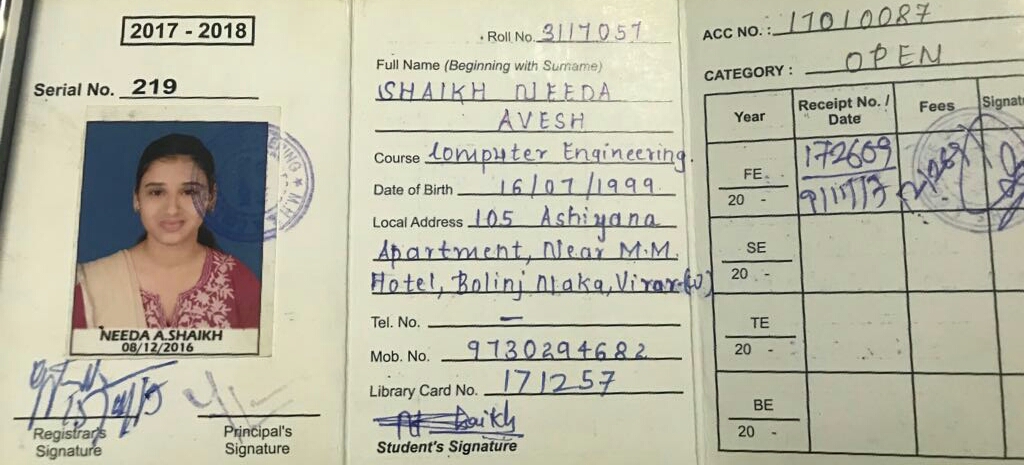 2017 - 2018
Serial No. 219
NEEDA A.SHAIKH
08/12/2016
Registrar's
Signature
Principal's
Signature
Roll No. 3117057
Full Name (Beginning with Surname)
SHAIKH NEEDA
AVESH
Course Computer Engineering.
Date of Birth 16/07/1999
Local Address 105 Ashiyana
Apartment, Near M.M.
Hotel, Bolinj Naka, Virar-(W)
Tel. No. —
Mob. No. 9730294682
Library Card No. 171257
Student's Signature
ACC NO. : 17010087
CATEGORY : OPEN
Year Receipt No. / Date Fees
FE 20 - 172609
SE 20 -
TE 20 -
BE 20 -